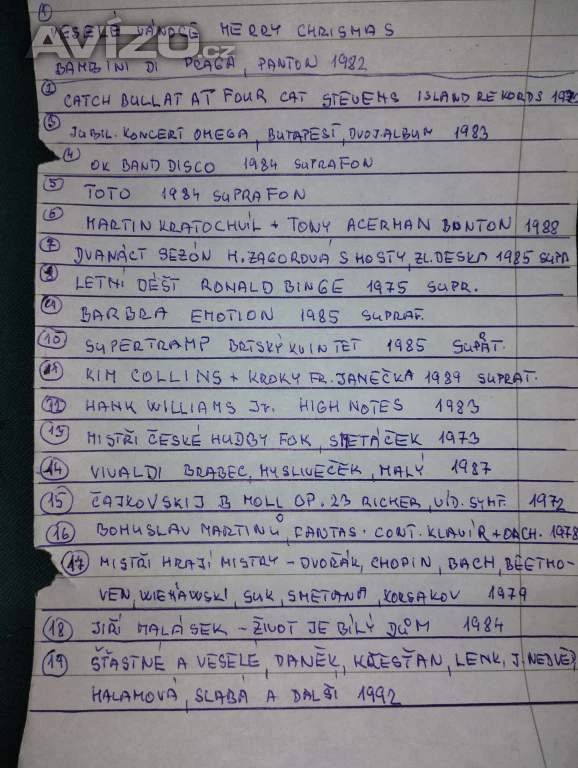 1 VESELÉ VÁNOCE MERRY CHRISMAS
AVÍZO.cz
BAMBINI DI PRAGA, PANTON 1982
2 CATCH BULLAT AT FOUR CAT STEVEMS ISLAND REKORDS
3 JUBIL. KONCERT OMEGA, BUTAPEŠT, DVOJALBUM 1983
4 OK BAND DISCO 1984 SUPRAFON
5 TOTO 1984 SUPRAFON
6 MARTIN KRATOCHVÍL + TONY ACERMAN BONTON 1988
7 DVANÁCT SEZÓN H. ZAGOROVÁ S HOSTY, ZL. DESKA 1985 SUPR
8 LETNÍ DÉŠT RONALD BINGE 1975 SUPR.
9 BARBRA EMOTION 1985 SUPRAF.
10 SUPERTRAMP BRTSKÝ KVINTET 1985
11 KIM COLLINS + KROKY FR. JANEČKA 1989 SUPRAF.
12 HANK WILLIAMS Jr. HIGH NOTES 1983
13 MISTŘI ČESKÉ HUDBY FOK, SMETÁČEK 1973
14 VIVALDI BRABEC, MYSLIVEČEK, MALÝ 1987
15 ČAJKOVSKIJ B MOLL OP. 23 RICHER, VÍD. SYMF. 1972
16 BOHUSLAV MARTINŮ, FANTAS. CONT. KLAVÍR + DACH. 1978
17 MISTŘI HRAJÍ MISTRY - DVOŘÁK, CHOPIN, BACH, BEETHO-
VEN, WIEŇAWSKI, SUK, SMETANA, KORSAKOV 1979
18 JIŘÍ MALÁSEK - ŽIVOT JE BÍLÝ DŮM 1984
19 ŠŤASTNÉ A VESELÉ, DANĚK, KŘESŤAN, LENK, J. NEDVĚD,
MALAMOVÁ, SLABÁ A DALŠI 1992